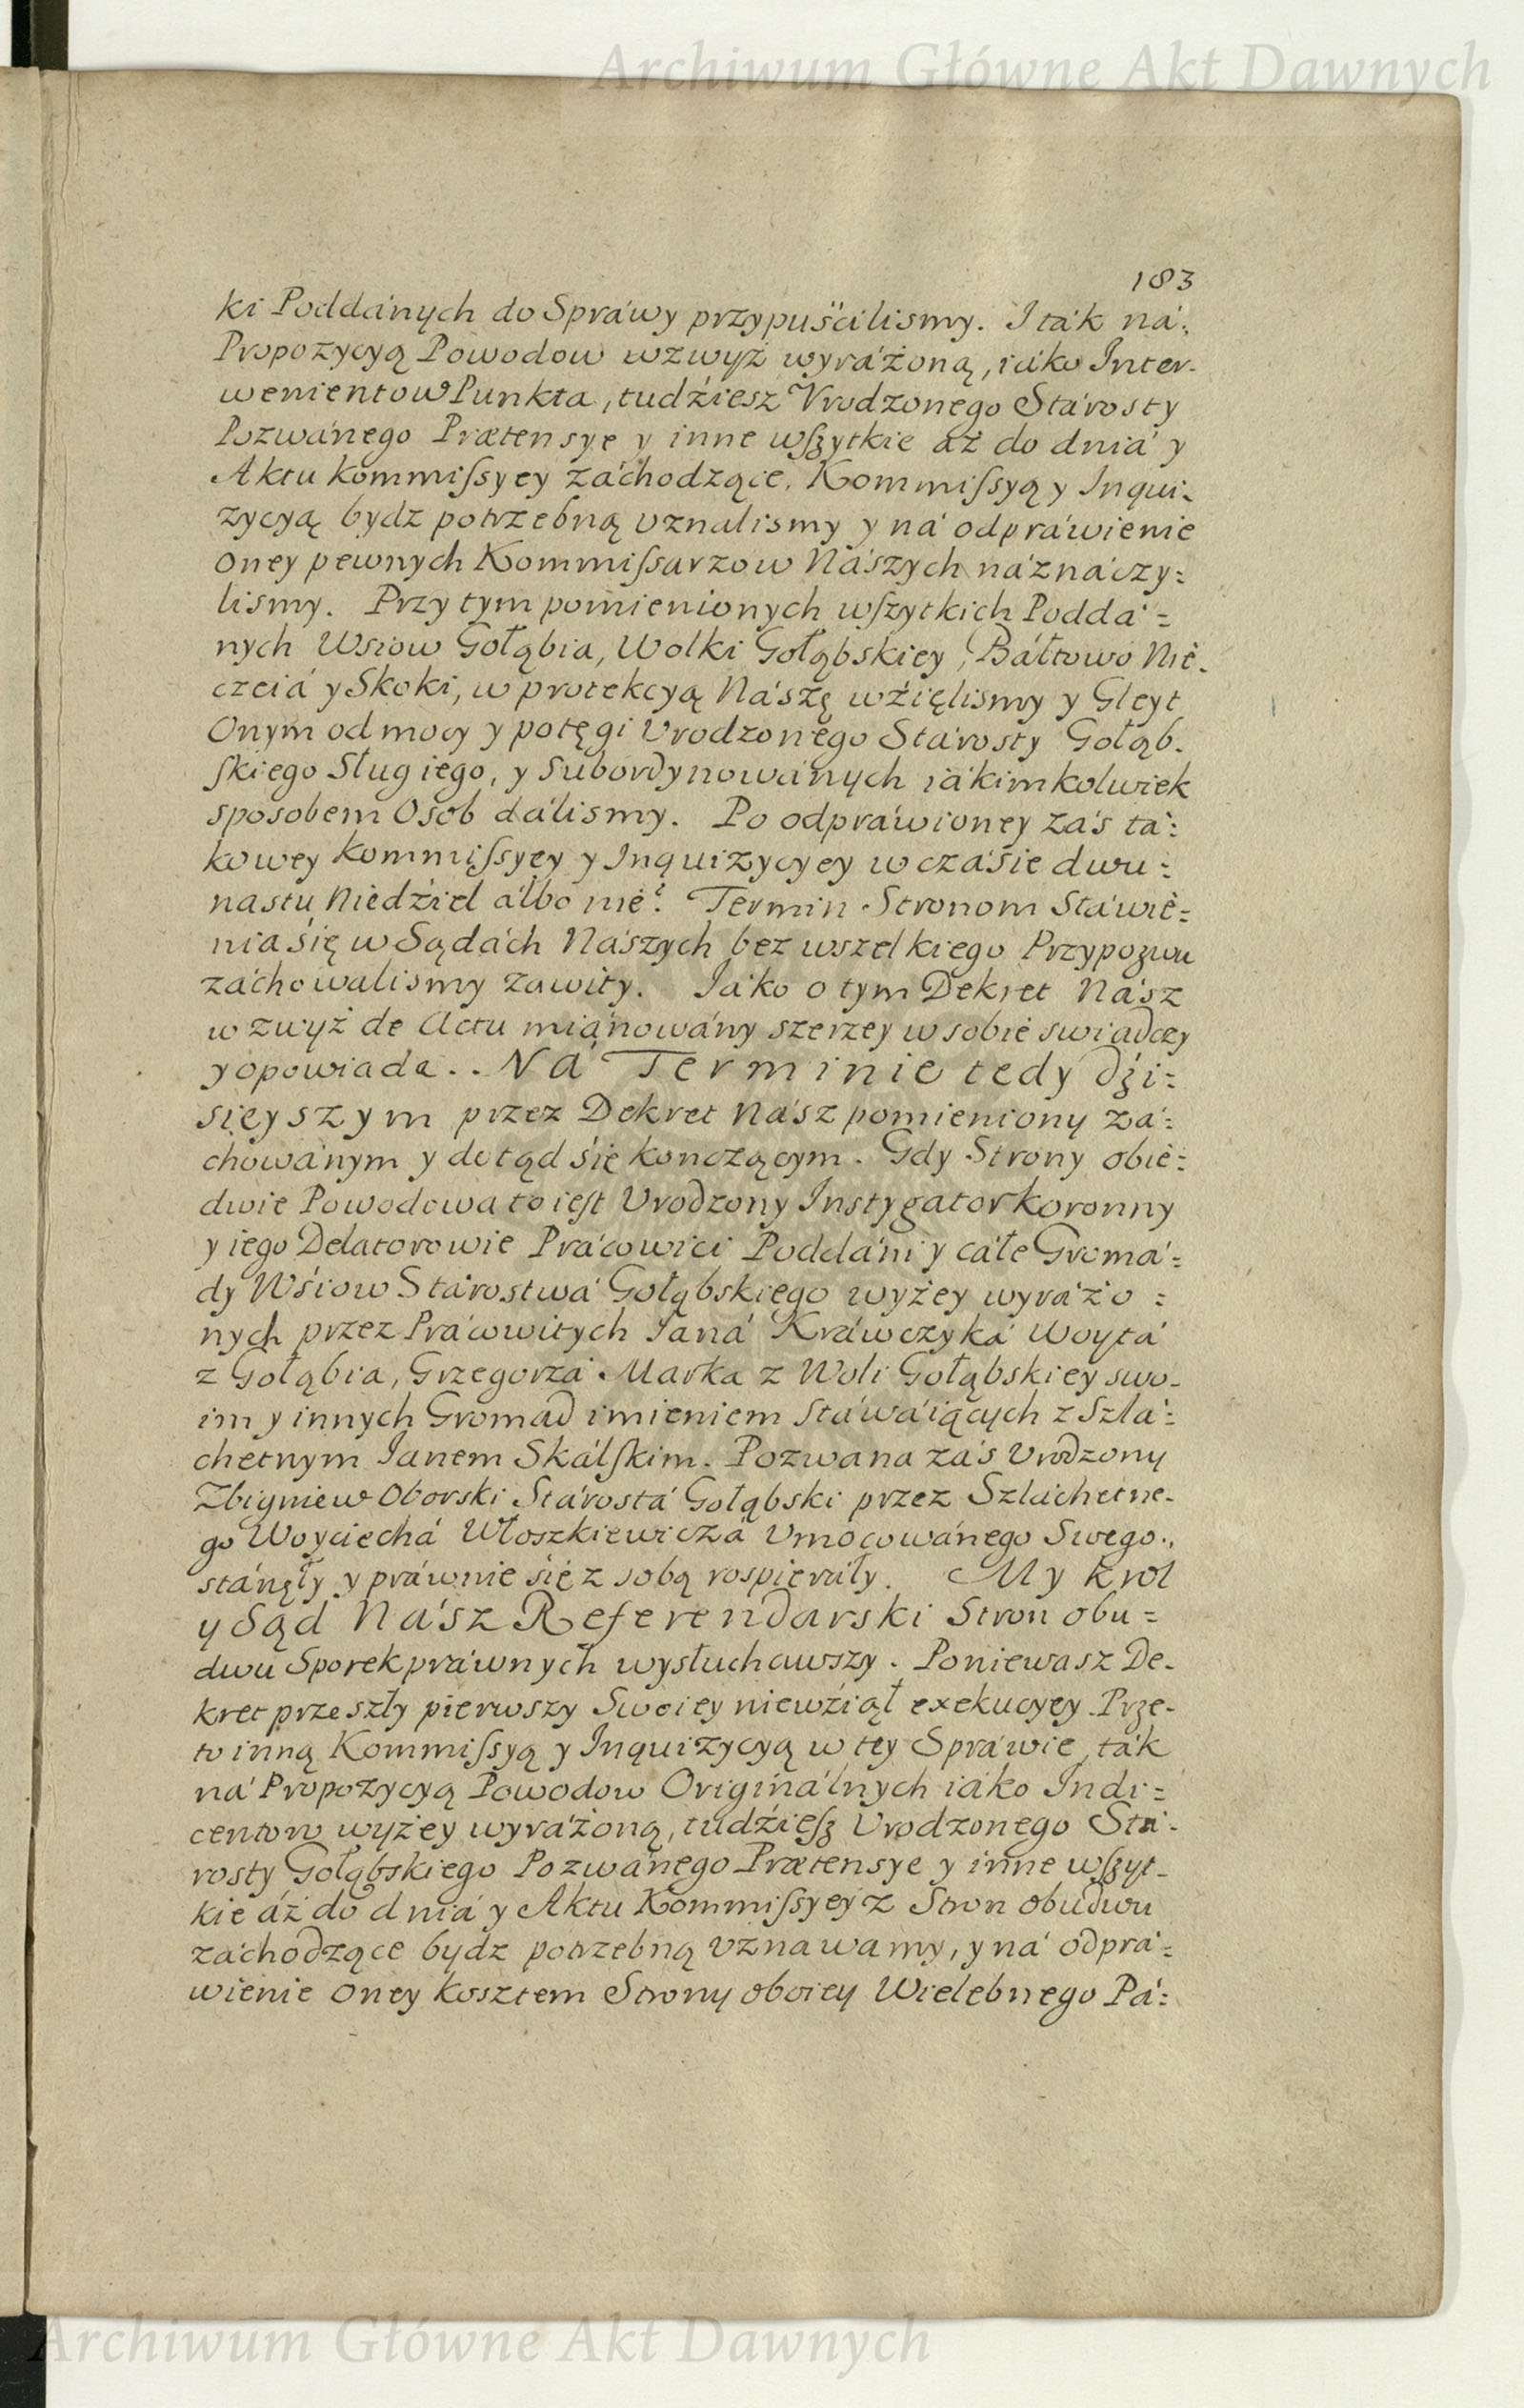 Archiwum Główne Akt Dawnych
183
ki Poddánych do Spráwy przypuśćilismy. I ták ná:
Propozycyą Powodow wzwyż wyráżoną, iáko Inter-
wenientow Punkta, tudźiesz Vrodzonego Stárosty
Pozwánego Prætensye y inne wſzytkie aż do dniá y
Aktu Kommiſsyey záchodzące, Kommiſsyą y Inqui-
zycyą bydz potrzebną vznalismy y ná odpráwienie
oney pewnych Kommiſsarzow Nászych náznáczy=
lismy. Przy tym pomienionych wſzytkich Poddá=
nych Wsiow Gołąbia, Wolki Gołąbskiey, Báłtowo Nie-
czciá y Skoki, w protekcyą Nászę wźięlismy y Gleyt
Onym od mocy y potęgi Vrodzonego Stárosty Gołąb-
ſkiego Sług iego, y Subordynowánych iákimkolwiek
sposobem Osob dálismy. Po odpráwioney záś tá=
kowey Kommiſsyey y Inquizycyey w czáśie dwu=
nastu Niedźiel álbo nie? Termin Stronom Stáwie=
nia śię w Sądách Nászych bez wszelkiego Przypozwu
záchowalismy zawity. Iáko o tym Dekret Nász
w zwyż de Actu miánowány szerzey w sobie swiadczy
y opowiada.. Ná Terminie tedy dźi=
sieyszym przez Dekret Nász pomieniony zá=
chowánym y dotąd śię konczącym. Gdy Strony obie=
dwie Powodowa to ieſt Vrodzony Instygator koronny
y iego Delatorowie Prácowici Poddáni y cáłe Gromá=
dy Wśiow Stárostwá Gołąbskiego wyżey wyráżo=
nych przez Prácowitych Janá Kráwczyká Woytá
z Gołąbia, Grzegorzá Marka z Woli Gołąbskiey swo-
im y innych Gromad imieniem Stáwáiących z Szlá=
chetnym Ianem Skálſkim. Pozwana záś Vrodzony
Zbigniew Oborski Stárostá Gołąbski przez Szláchetne-
go Woyciechá Włoszkiewiczá Vmocowánego Swego.,
stánęły y práwnie śię z sobą rospieráły. My Krol
y Sąd Nász Referendarski Stron obu=
dwu Sporek práwnych wysłuchawszy. Poniewasz De-
kret przeszły pierwszy Swoiey niewźiął exekucyey. Prze-
to inną Kommiſsyą y Inquizycyą w tey Spráwie, ták
ná Propozycyą Powodow Originálnych iáko Indi=
centow wyżey wyráżoną, tudźieſz Vrodzonego Stá-
rosty Gołąbskiego Pozwánego Prætensye y inne wſzyt-
kie áż do dniá y Aktu Kommiſsyey z Stron obudwu
záchodzące bydz potrzebną vznawamy, y ná odprá=
wienie oney kosztem Strony oboiey Wielebnego Pá=
Archiwum Główne Akt Dawnych